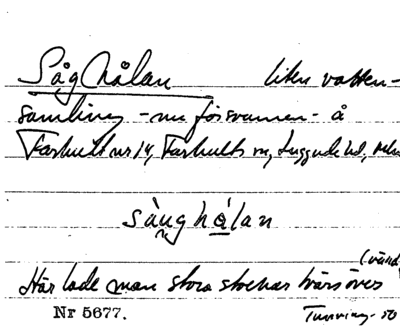 Såghålan liten vatten-
samling - nu försvunnen - å
Farhult nr 14, Farhults sn, Luggude hd,
såŋghålan
Här lade man stora stockar tvärs över
Nr 5677.